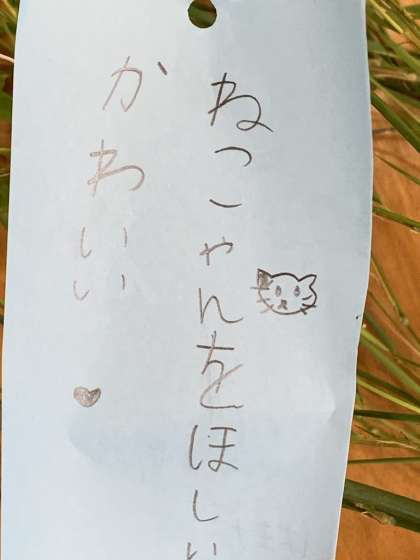 ねこゃんをほしい
かわいい♥